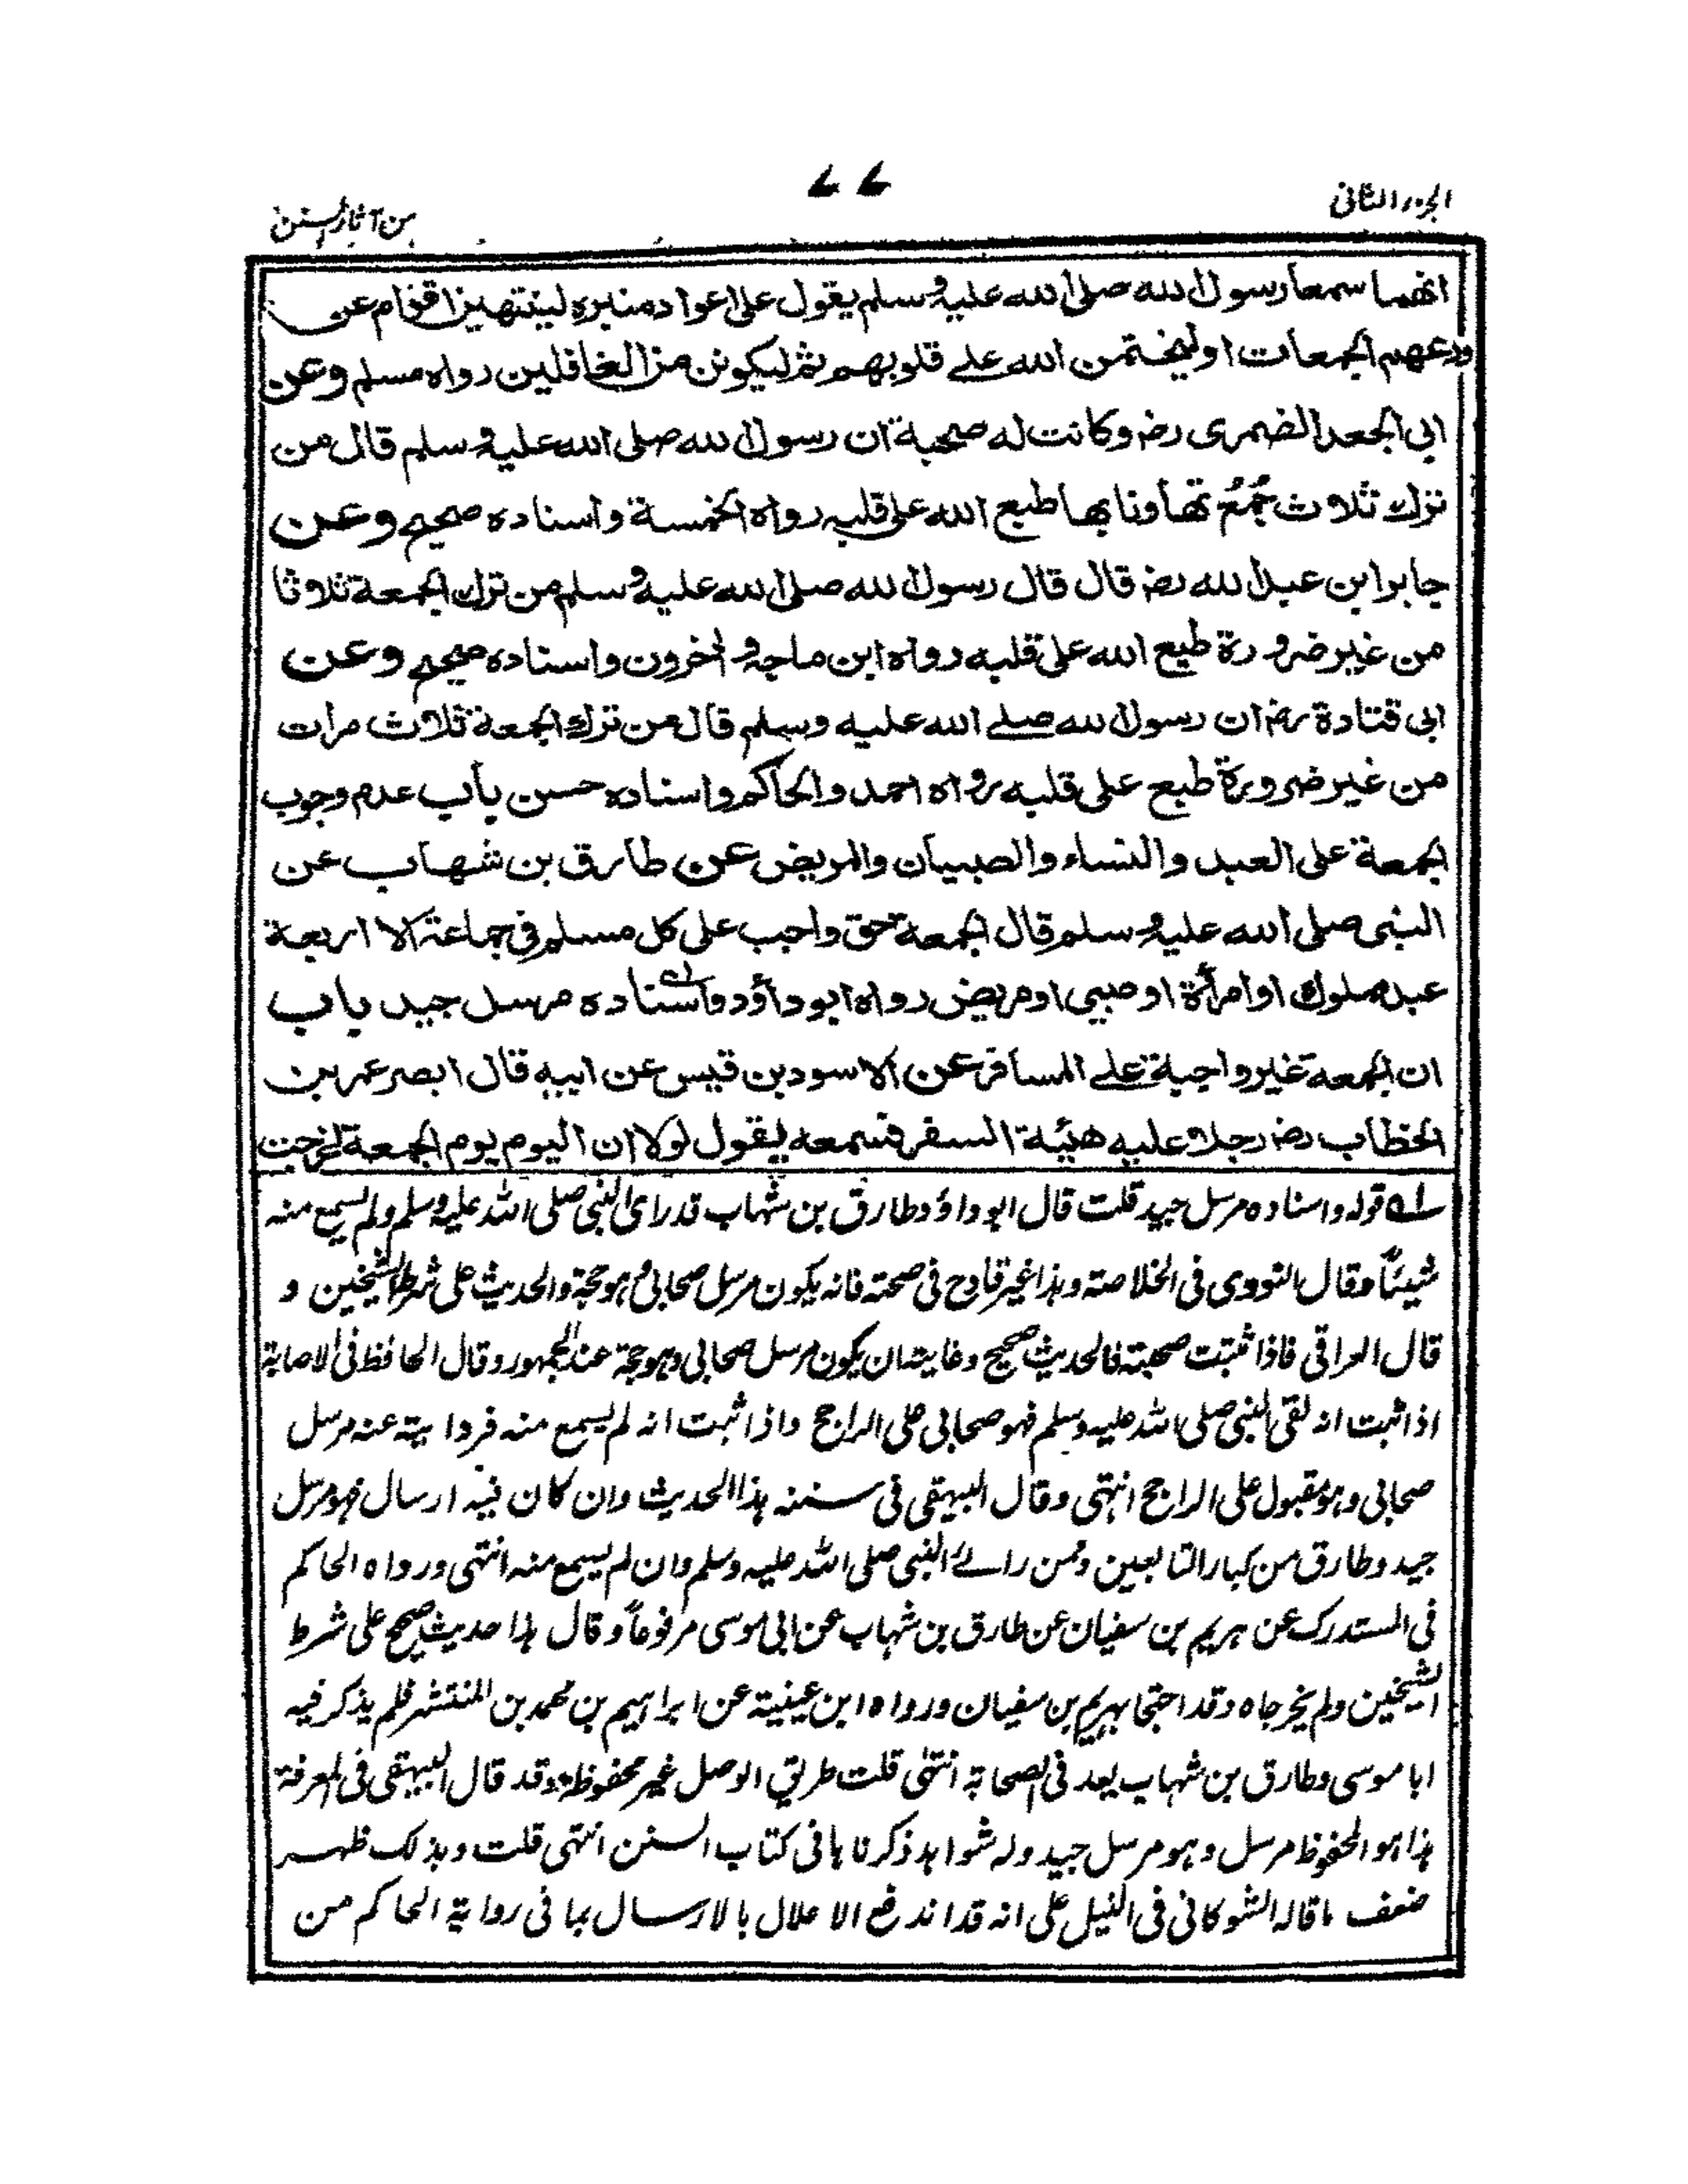 الجزء الثانى
٧٧
من آثار السنن
انهما سمعا رسول الله صلى الله عليه وسلم يقول على اعواد منبره لينتهين اقوام عن
ودعهم الجمعات او ليختمن الله على قلوبهم ثم ليكونن من الغافلين رواه مسلم وعن
ابى الجعد الضمرى رضـ وكانت له صحبة ان رسول الله صلى الله عليه وسلم قال من
ترك ثلاث جُمُعٍ تهاونا بها طبع الله على قلبه رواه الخمسة واسناده صحيح وعن
جابر ابن عبد الله رضـ قال قال رسول الله صلى الله عليه وسلم من ترك الجمعة ثلاثا
من غير ضرورة طبع الله على قلبه رواه ابن ماجة واخرون واسناده صحيح وعن
ابى قتادة رضـ ان رسول الله صلے الله عليه وسلم قال من ترك الجمعة ثلاث مرات
من غير ضرورة طبع على قلبه رواه احمد والحاكم واسناده حسن باب عدم وجوب
الجمعة على العبد والنساء والصبيان والمريض عن طارق بن شهاب عن
النبى صلى الله عليه وسلم قال الجمعة حق واجب على كل مسلم فى جماعة الا اربعة
عبد مملوك او امرأة او صبى او مريض رواه ابو داؤد واسناده مرسل جيد باب
ان الجمعة غير واجبة علے المسافر عن الاسود بن قيس عن ابيه قال ابصر عمر بن
الخطاب رضـ رجلا عليه هيئة السفر فسمعه يقول لولا ان اليوم يوم الجمعة لخرجت
لـه قوله واسناده مرسل جيد قلت قال ابو داؤد طارق بن شهاب قد راى النبى صلى الله عليه وسلم ولم يسمع منه
شيئاً وقال النووى فى الخلاصة وهذا غير قادح فى صحته فانه يكون مرسل صحابى وهو حجة والحديث على شرط الشيخين و
قال العراقى فاذا ثبتت صحبته فالحديث صحيح وغايته ان يكون مرسل صحابى وهو حجة عند الجمهور وقال الحافظ فى الاصابة
اذا ثبت انه لقى النبى صلى الله عليه وسلم فهو صحابى على الراجح واذا ثبت انه لم يسمع منه فروايته عنه مرسل
صحابى وهو مقبول على الراجح انتهى وقال البيهقى فى سننه هذا الحديث وان كان فيه ارسال فهو مرسل
جيد وطارق من كبار التابعين وممن رائے النبى صلى الله عليه وسلم وان لم يسمع منه انتهى ورواه الحاكم
فى المستدرك عن هريم بن سفيان عن طارق بن شهاب عن ابى موسى مرفوعاً وقال هذا حديث صحيح على شرط
الشيخين ولم يخرجاه وقد احتجا بهريم بن سفيان ورواه ابن عيينة عن ابراهيم بن محمد بن المنتشر فلم يذكر فيه
ابا موسى وطارق بن شهاب يعد فى الصحابة انتهى قلت طريق الوصل غير محفوظة وقد قال البيهقى فى المعرفة
هذا هو المحفوظ مرسل وهو مرسل جيد وله شواهد ذكرناها فى كتاب السنن انتهى قلت وبذلك ظهر
ضعف ما قاله الشوكانى فى النيل على انه قد اندفع الاعلال بالارسال بما فى رواية الحاكم من